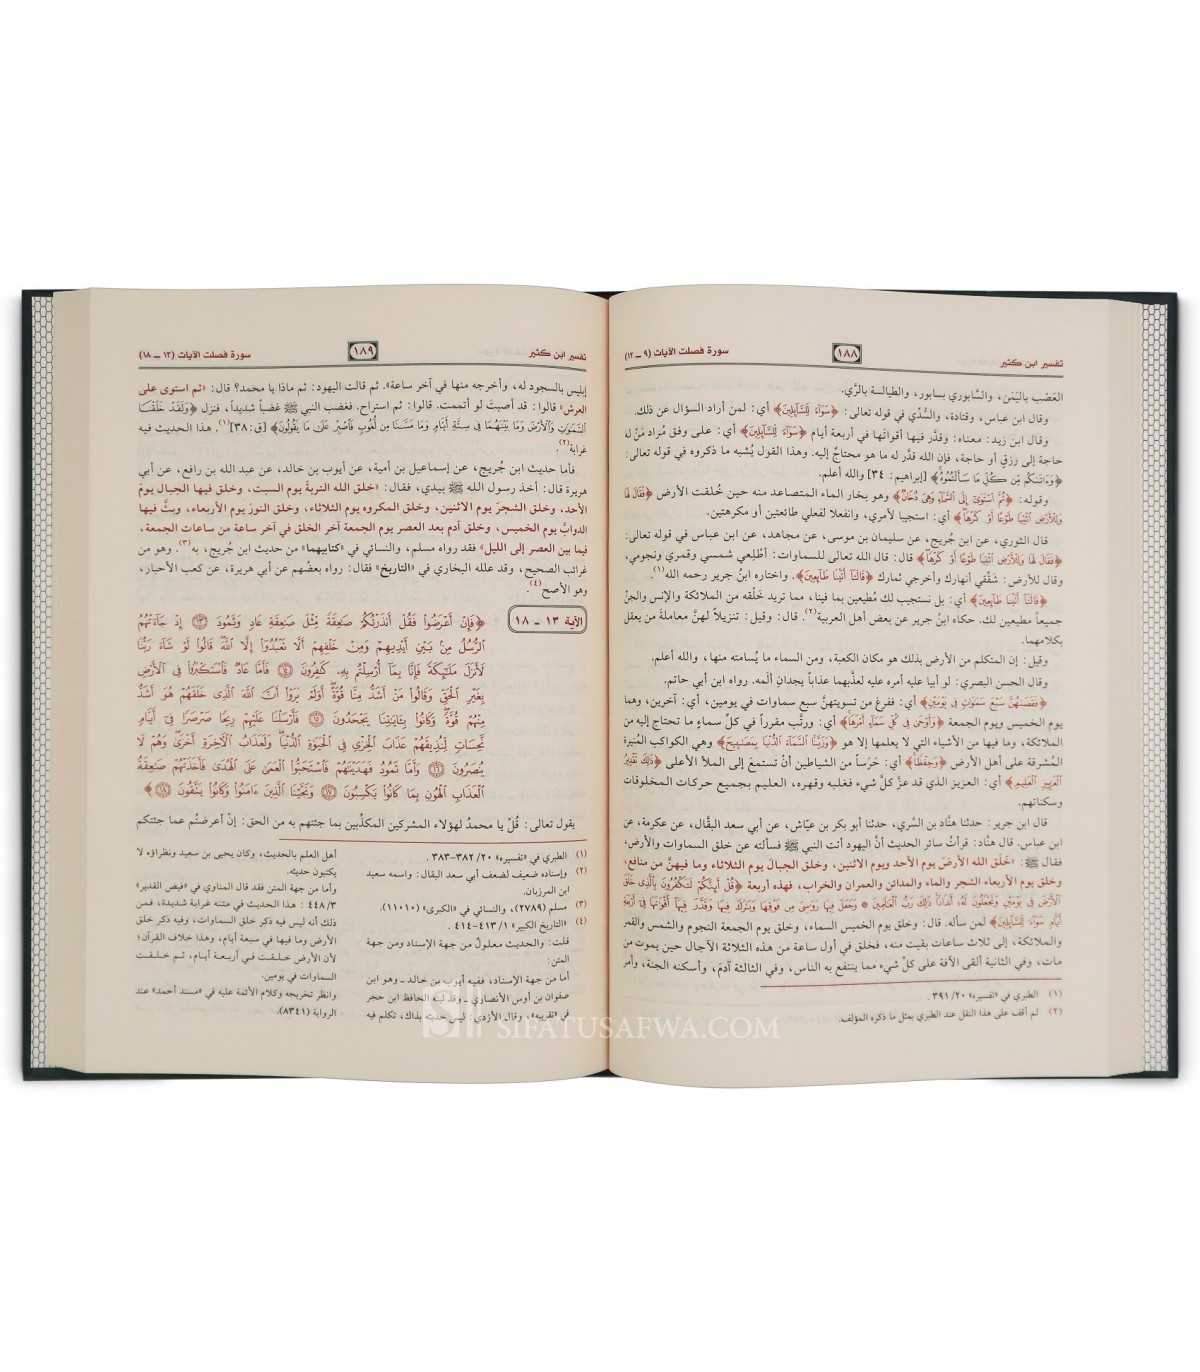 تفسير ابن كثير
١٨٨
سورة فصلت الآيات (٩ ـ ١٢)
العَصْب باليَمَن، والسَّابوري بسابور، والطيالسة بالرَّي.
وقال ابن عباس، وقتادة، والسُّدِّي في قوله تعالى: ﴿سَوَآءً لِّلسَّآئِلِينَ﴾ أي: لمن أراد السؤال عن ذلك.
وقال ابن زيد: معناه: وقدَّر فيها أقواتَها في أربعة أيام ﴿سَوَآءً لِّلسَّآئِلِينَ﴾ أي: على وفق مُراد مَنْ له
حاجة إلى رزقٍ أو حاجة، فإن الله قدَّر له ما هو محتاجٌ إليه. وهذا القول يُشبه ما ذكروه في قوله تعالى:
﴿وَءَاتَىٰكُم مِّن كُلِّ مَا سَأَلْتُمُوهُ﴾ [إبراهيم: ٣٤] والله أعلم.
وقوله: ﴿ثُمَّ ٱسْتَوَىٰٓ إِلَى ٱلسَّمَآءِ وَهِىَ دُخَانٌ﴾ وهو بخار الماء المتصاعد منه حين خُلقت الأرض ﴿فَقَالَ لَهَا
وَلِلْأَرْضِ ٱئْتِيَا طَوْعًا أَوْ كَرْهًا﴾ أي: استجيبا لأمري، وانفعلا لفعلي طائعتين أو مكرهتين.
قال الثوري، عن ابن جُريج، عن سليمان بن موسى، عن مجاهد، عن ابن عباس في قوله تعالى:
﴿فَقَالَ لَهَا وَلِلْأَرْضِ ٱئْتِيَا طَوْعًا أَوْ كَرْهًا﴾ قال: قال الله تعالى للسماوات: أطْلِعي شمسي وقمري ونجومي،
وقال للأرض: شَقِّقي أنهارك وأخرجي ثمارك ﴿قَالَتَآ أَتَيْنَا طَآئِعِينَ﴾. واختاره ابنُ جرير رحمه الله(١).
﴿قَالَتَآ أَتَيْنَا طَآئِعِينَ﴾ أي: بل نستجيب لك مُطيعين بما فينا، مما تريد خَلْقه من الملائكة والإنس والجنِّ
جميعاً مطيعين لك. حكاه ابنُ جرير عن بعض أهل العربية(٢). قال: وقيل: تنزيلاً لهنَّ معاملةَ من يعقل
بكلامهما.
وقيل: إن المتكلم من الأرض بذلك هو مكان الكعبة، ومن السماء ما يُسامته منها، والله أعلم.
وقال الحسن البصري: لو أبيا عليه أمره عليه لعذَّبهما عذاباً يجدانِ ألَمه. رواه ابن أبي حاتم.
﴿فَقَضَىٰهُنَّ سَبْعَ سَمَٰوَاتٍ فِى يَوْمَيْنِ﴾ أي: ففرغ من تسويتهنَّ سبع سماوات في يومين، أي: آخرين، وهما
يوم الخميس ويوم الجمعة ﴿وَأَوْحَىٰ فِى كُلِّ سَمَآءٍ أَمْرَهَا﴾ أي: ورتَّب مقرراً في كلِّ سماءٍ ما تحتاج إليه من
الملائكة، وما فيها من الأشياء التي لا يعلمها إلا هو ﴿وَزَيَّنَّا ٱلسَّمَآءَ ٱلدُّنْيَا بِمَصَٰبِيحَ﴾ وهي الكواكب المُنيرة
المُشرقة على أهل الأرض ﴿وَحِفْظًا﴾ أي: حَرَساً من الشياطين أنْ تستمعَ إلى الملأ الأعلى ﴿ذَٰلِكَ تَقْدِيرُ
ٱلْعَزِيزِ ٱلْعَلِيمِ﴾ أي: العزيز الذي قد عزَّ كلَّ شيء فغلبه وقهره، العليم بجميع حركات المخلوقات
وسكناتهم.
قال ابن جرير: حدثنا هنَّاد بن السَّري، حدثنا أبو بكر بن عيَّاش، عن أبي سعد البقَّال، عن عكرمة، عن
ابن عباس. قال هنَّاد: قرأتُ سائر الحديث أنَّ اليهود أتت النبي ﷺ فسألته عن خلق السماوات والأرض؛
فقال ﷺ: «خَلَق الله الأرضَ يوم الأحد ويوم الاثنين، وخلق الجبالَ يوم الثلاثاء وما فيهنَّ من منافع،
وخلق يوم الأربعاء الشجر والماء والمدائن والعمران والخراب، فهذه أربعة ﴿قُلْ أَئِنَّكُمْ لَتَكْفُرُونَ بِٱلَّذِى خَلَقَ
ٱلْأَرْضَ فِى يَوْمَيْنِ وَتَجْعَلُونَ لَهُۥٓ أَندَادًا ذَٰلِكَ رَبُّ ٱلْعَٰلَمِينَ ۞ وَجَعَلَ فِيهَا رَوَٰسِىَ مِن فَوْقِهَا وَبَٰرَكَ فِيهَا وَقَدَّرَ فِيهَآ أَقْوَٰتَهَا فِىٓ أَرْبَعَةِ
أَيَّامٍ سَوَآءً لِّلسَّآئِلِينَ﴾ لمن سأله. قال: وخلق يوم الخميس السماء، وخلق يوم الجمعة النجوم والشمس والقمر
والملائكة، إلى ثلاث ساعات بقيت منه، فخلق في أول ساعة من هذه الثلاثة الآجال حين يموت من
مات، وفي الثانية ألقى الآفة على كلِّ شيء مما ينتفع به الناس، وفي الثالثة آدمَ، وأسكنه الجنة، وأمر
(١) الطبري في «تفسيره» ٣٩١/٢٠.
(٢) لم أقف على هذا النقل عند الطبري بمثل ما ذكره المؤلف.
تفسير ابن كثير
١٨٩
سورة فصلت الآيات (١٣ ـ ١٨)
إبليس بالسجود له، وأخرجه منها في آخر ساعة». ثم قالت اليهود: ثم ماذا يا محمد؟ قال: «ثم استوى على
العرش» قالوا: قد أصبتَ لو أتممت. قالوا: ثم استراح. فغضب النبي ﷺ غضباً شديداً، فنزل ﴿وَلَقَدْ خَلَقْنَا
ٱلسَّمَٰوَٰتِ وَٱلْأَرْضَ وَمَا بَيْنَهُمَا فِى سِتَّةِ أَيَّامٍ وَمَا مَسَّنَا مِن لُّغُوبٍ فَٱصْبِرْ عَلَىٰ مَا يَقُولُونَ﴾ [ق: ٣٨](١). هذا الحديث فيه
غرابة(٢).
فأما حديث ابن جُريج، عن إسماعيل بن أمية، عن أيوب بن خالد، عن عبد الله بن رافع، عن أبي
هريرة قال: أخذ رسول الله ﷺ بيدي، فقال: «خلق الله التربةَ يوم السبت، وخلق فيها الجبال يومَ
الأحد، وخلق الشجرَ يوم الاثنين، وخلق المكروه يوم الثلاثاء، وخلق النورَ يوم الأربعاء، وبثَّ فيها
الدوابَّ يوم الخميس، وخلق آدم بعد العصر يوم الجمعة آخر الخلق في آخر ساعة من ساعات الجمعة،
فيما بين العصر إلى الليل» فقد رواه مسلم، والنسائي في «كتابيهما» من حديث ابن جُريج، به(٣). وهو من
غرائب الصحيح، وقد علله البخاري في «التاريخ» فقال: رواه بعضُهم عن أبي هريرة، عن كعب الأحبار،
وهو الأصح(٤).
الآية ١٣ ـ ١٨
﴿فَإِنْ أَعْرَضُوا۟ فَقُلْ أَنذَرْتُكُمْ صَٰعِقَةً مِّثْلَ صَٰعِقَةِ عَادٍ وَثَمُودَ ۝١٣ إِذْ جَآءَتْهُمُ
ٱلرُّسُلُ مِنۢ بَيْنِ أَيْدِيهِمْ وَمِنْ خَلْفِهِمْ أَلَّا تَعْبُدُوٓا۟ إِلَّا ٱللَّهَ قَالُوا۟ لَوْ شَآءَ رَبُّنَا
لَأَنزَلَ مَلَٰٓئِكَةً فَإِنَّا بِمَآ أُرْسِلْتُم بِهِۦ كَٰفِرُونَ ۝١٤ فَأَمَّا عَادٌ فَٱسْتَكْبَرُوا۟ فِى ٱلْأَرْضِ
بِغَيْرِ ٱلْحَقِّ وَقَالُوا۟ مَنْ أَشَدُّ مِنَّا قُوَّةً أَوَلَمْ يَرَوْا۟ أَنَّ ٱللَّهَ ٱلَّذِى خَلَقَهُمْ هُوَ أَشَدُّ
مِنْهُمْ قُوَّةً وَكَانُوا۟ بِـَٔايَٰتِنَا يَجْحَدُونَ ۝١٥ فَأَرْسَلْنَا عَلَيْهِمْ رِيحًا صَرْصَرًا فِىٓ أَيَّامٍ
نَّحِسَاتٍ لِّنُذِيقَهُمْ عَذَابَ ٱلْخِزْىِ فِى ٱلْحَيَوٰةِ ٱلدُّنْيَا وَلَعَذَابُ ٱلْءَاخِرَةِ أَخْزَىٰ وَهُمْ لَا
يُنصَرُونَ ۝١٦ وَأَمَّا ثَمُودُ فَهَدَيْنَٰهُمْ فَٱسْتَحَبُّوا۟ ٱلْعَمَىٰ عَلَى ٱلْهُدَىٰ فَأَخَذَتْهُمْ صَٰعِقَةُ
ٱلْعَذَابِ ٱلْهُونِ بِمَا كَانُوا۟ يَكْسِبُونَ ۝١٧ وَنَجَّيْنَا ٱلَّذِينَ ءَامَنُوا۟ وَكَانُوا۟ يَتَّقُونَ ۝١٨﴾
يقول تعالى: قُلْ يا محمدُ لهؤلاء المشركين المكذِّبين بما جئتهم به من الحق: إنْ أعرضتُم عما جئتكم
(١) الطبري في «تفسيره» ٢٠/ ٣٨٢-٣٨٣.
(٢) وإسناده ضعيف لضعف أبي سعد البقال: واسمه سعيد
ابن المرزبان.
(٣) مسلم (٢٧٨٩)، والنسائي في «الكبرى» (١١٠١٠).
(٤) «التاريخ الكبير» ١/ ٤١٣-٤١٤.
قلت: والحديث معلولٌ من جهة الإسناد ومن جهة
المتن:
أما من جهة الإسناد، ففيه أيوب بن خالد ـ وهو ابن
صفوان بن أوس الأنصاري ـ وفيه الحافظ ابن حجر
في «تقريبه»، وقال الأزدي: ليس حديثه بذاك، تكلم فيه
أهل العلم بالحديث، وكان يحيى بن سعيد ونظراؤه لا
يكتبون حديثه.
وأما من جهة المتن فقد قال المناوي في «فيض القدير»
٤٤٨/٣ : هذا الحديث في متنه غرابة شديدة، فمن
ذلك أنه ليس فيه ذكر خلق السماوات، وفيه ذكر خلق
الأرض وما فيها في سبعة أيام، وهذا خلاف القرآن؛
لأن الأرض خلقت في أربعة أيام، ثم خلقت
السماوات في يومين.
وانظر تخريجه وكلام الأئمة عليه في «مسند أحمد» عند
الرواية (٨٣٤١).
SIFATUSAFWA.COM